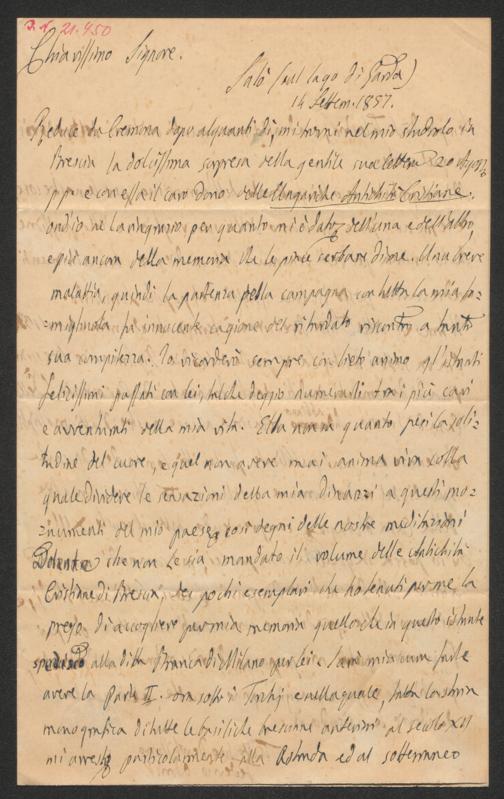 21.450
Chiarissimo Signore.
Salò (sul lago di Garda)
14 Settem. 1857.
Reduce da Cremona dopo alquanti dì, mi tornò nel mio studiolo in
Brescia la dolcissima sorpresa della gentile sua lettera 20 Agosto
pp. e con essa il caro dono delle Ungariche Antichità Cristiane.
ond'io ne la ringrazio, per quanto mi è dato, dell'una e dell'altro,
e più ancora della memoria che le piace serbare di me. Una breve
malattia, quindi la partenza della campagna con tutta la mia fa=
=migliuola fu innocente cagione del ritardato riscontro a tanta
sua compitezza. Io ricorderò sempre con lieto animo gl'istanti
felicissimi passati con lei, talche deggio numerarli tra i più cari
e avventurati della mia vita. Ella non sa quanto pesi la soli=
tudine del cuore, e quel non avere mai anima viva colla
quale dividere le sensazioni della mia dinanzi a questi mo=
=numenti del mio paese, così degni delle nostre meditazioni
Dolente che non le sia mandato il volume delle Antichità
Cristiane di Brescia, dei pochi esemplari che ho tenuti per me, la
prego di accogliere per mia memoria quello che in questo istante
spedisco alla ditta Branca di Milano per lei e sarà mia cura farle
avere la Parte II. ora sotto i Torchj e nella quale, tutta la storia
monografica di tutte le basiliche bresciane anteriori al secolo XII
mi arresto particolarmente alla Rotonda ed al sotterraneo